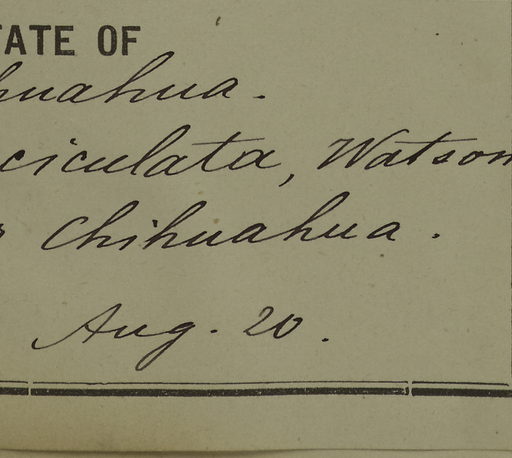 TATE OF
huahua.
ciculata, Watson
Chihuahua.
Aug. 20.